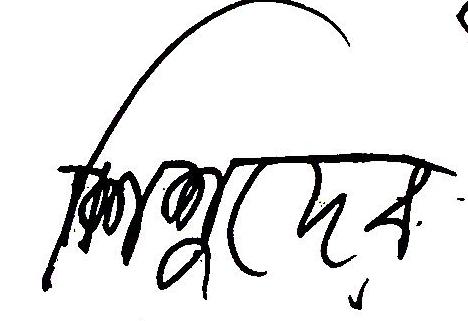 শিশুদের